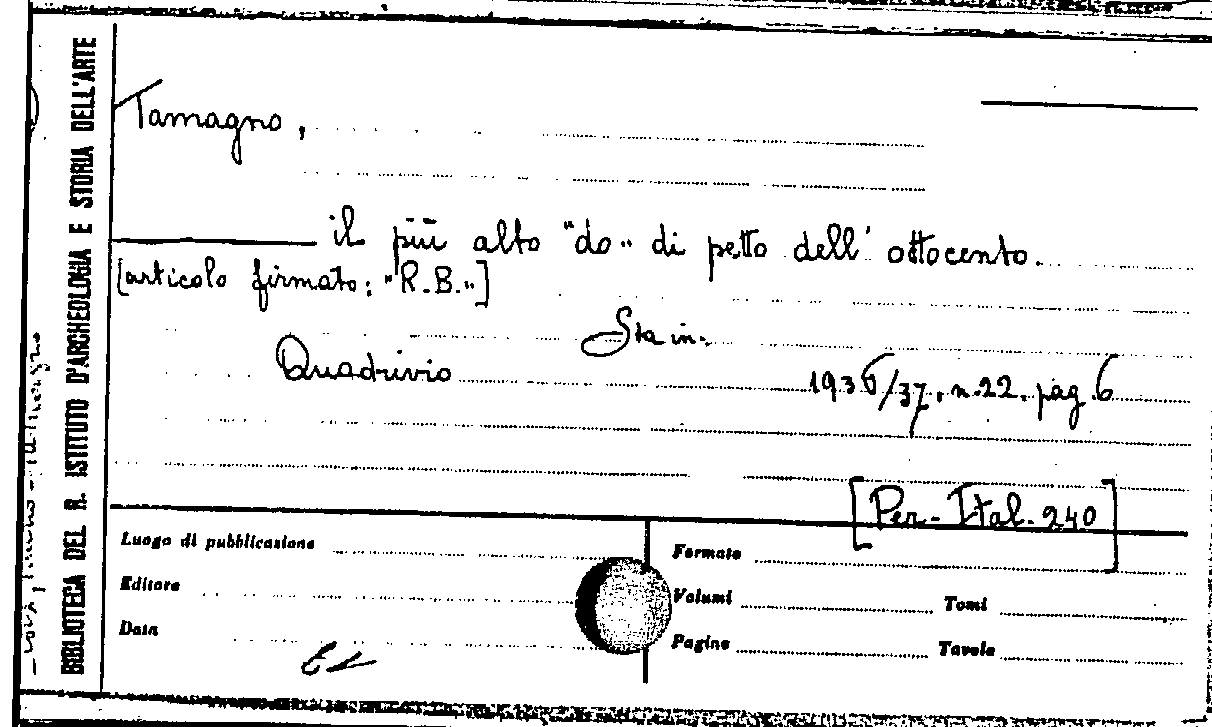 BIBLIOTECA DEL R. ISTITUTO D'ARCHEOLOGIA E STORIA DELL'ARTE
Tamagno,
il più alto "do" di petto dell' ottocento.
[articolo firmato: "R.B."]
Sta in:
Quadrivio 1936/37, n. 22. pag. 6
[Per. Ital. 240]
Luogo di pubblicazione
Formato
Editore
Volumi Tomi
Data
Pagine Tavole